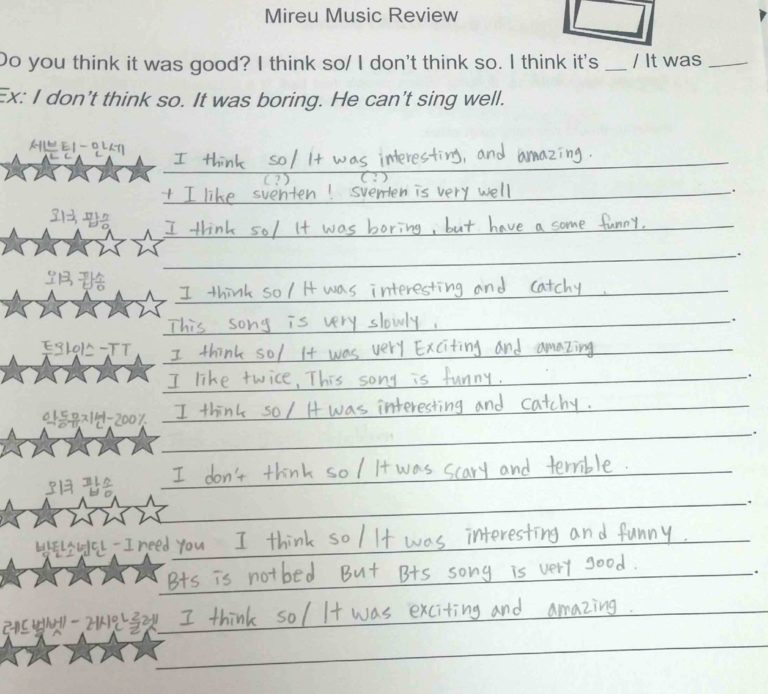 Mireu Music Review
Do you think it was good? I think so/ I don't think so. I think it's __ / It was ____
Ex: I don't think so. It was boring. He can't sing well.
세븐틴-만세
I think so/ It was interesting, and amazing.
(?) (?)
+ I like sventen ! sventen is very well .
외국 팝송
I think so/ It was boring, but have a some funny.
.
외국 팝송
I think so/ It was interesting and catchy .
This song is very slowly, .
트와이스-TT
I think so/ It was very Exciting and amazing
I like twice, This song is funny. .
악동뮤지션-200%
I think so/ It was interesting and catchy.
.
외국 팝송
I don't think so/ It was scary and terrible.
.
방탄소년단-I need you I think so/ It was interesting and funny.
Bts is not bed But Bts song is very good. .
레드벨벳-러시안룰렛 I think so/ It was exciting and amazing.